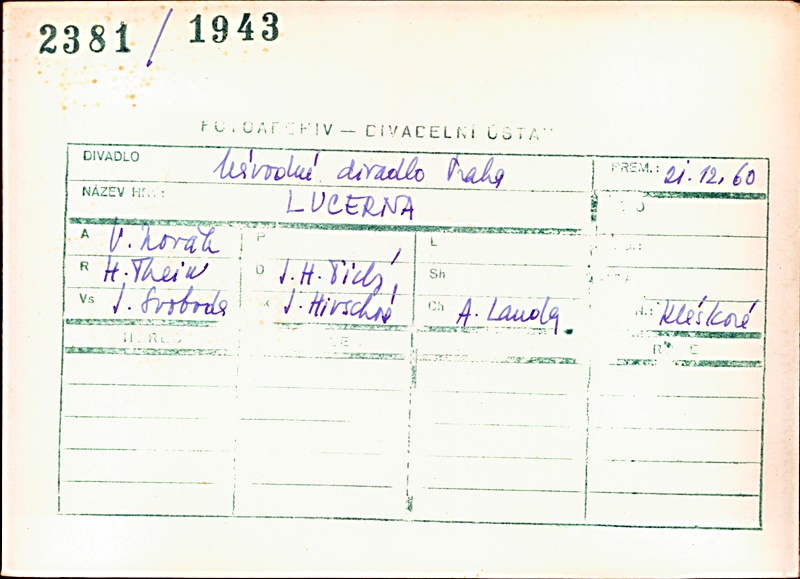 2381 / 1943
FOTOARCHIV — DIVADELNÍ ÚSTAV
DIVADLO Národní divadlo Praha PREM.: 21.12.60
NÁZEV HRY: LUCERNA
A V. Novák P L
R H. Thein D J. H. Tichý Sh
Vs J. Svoboda K J. Hirschová Ch A. Landa Kléšková
HEREC